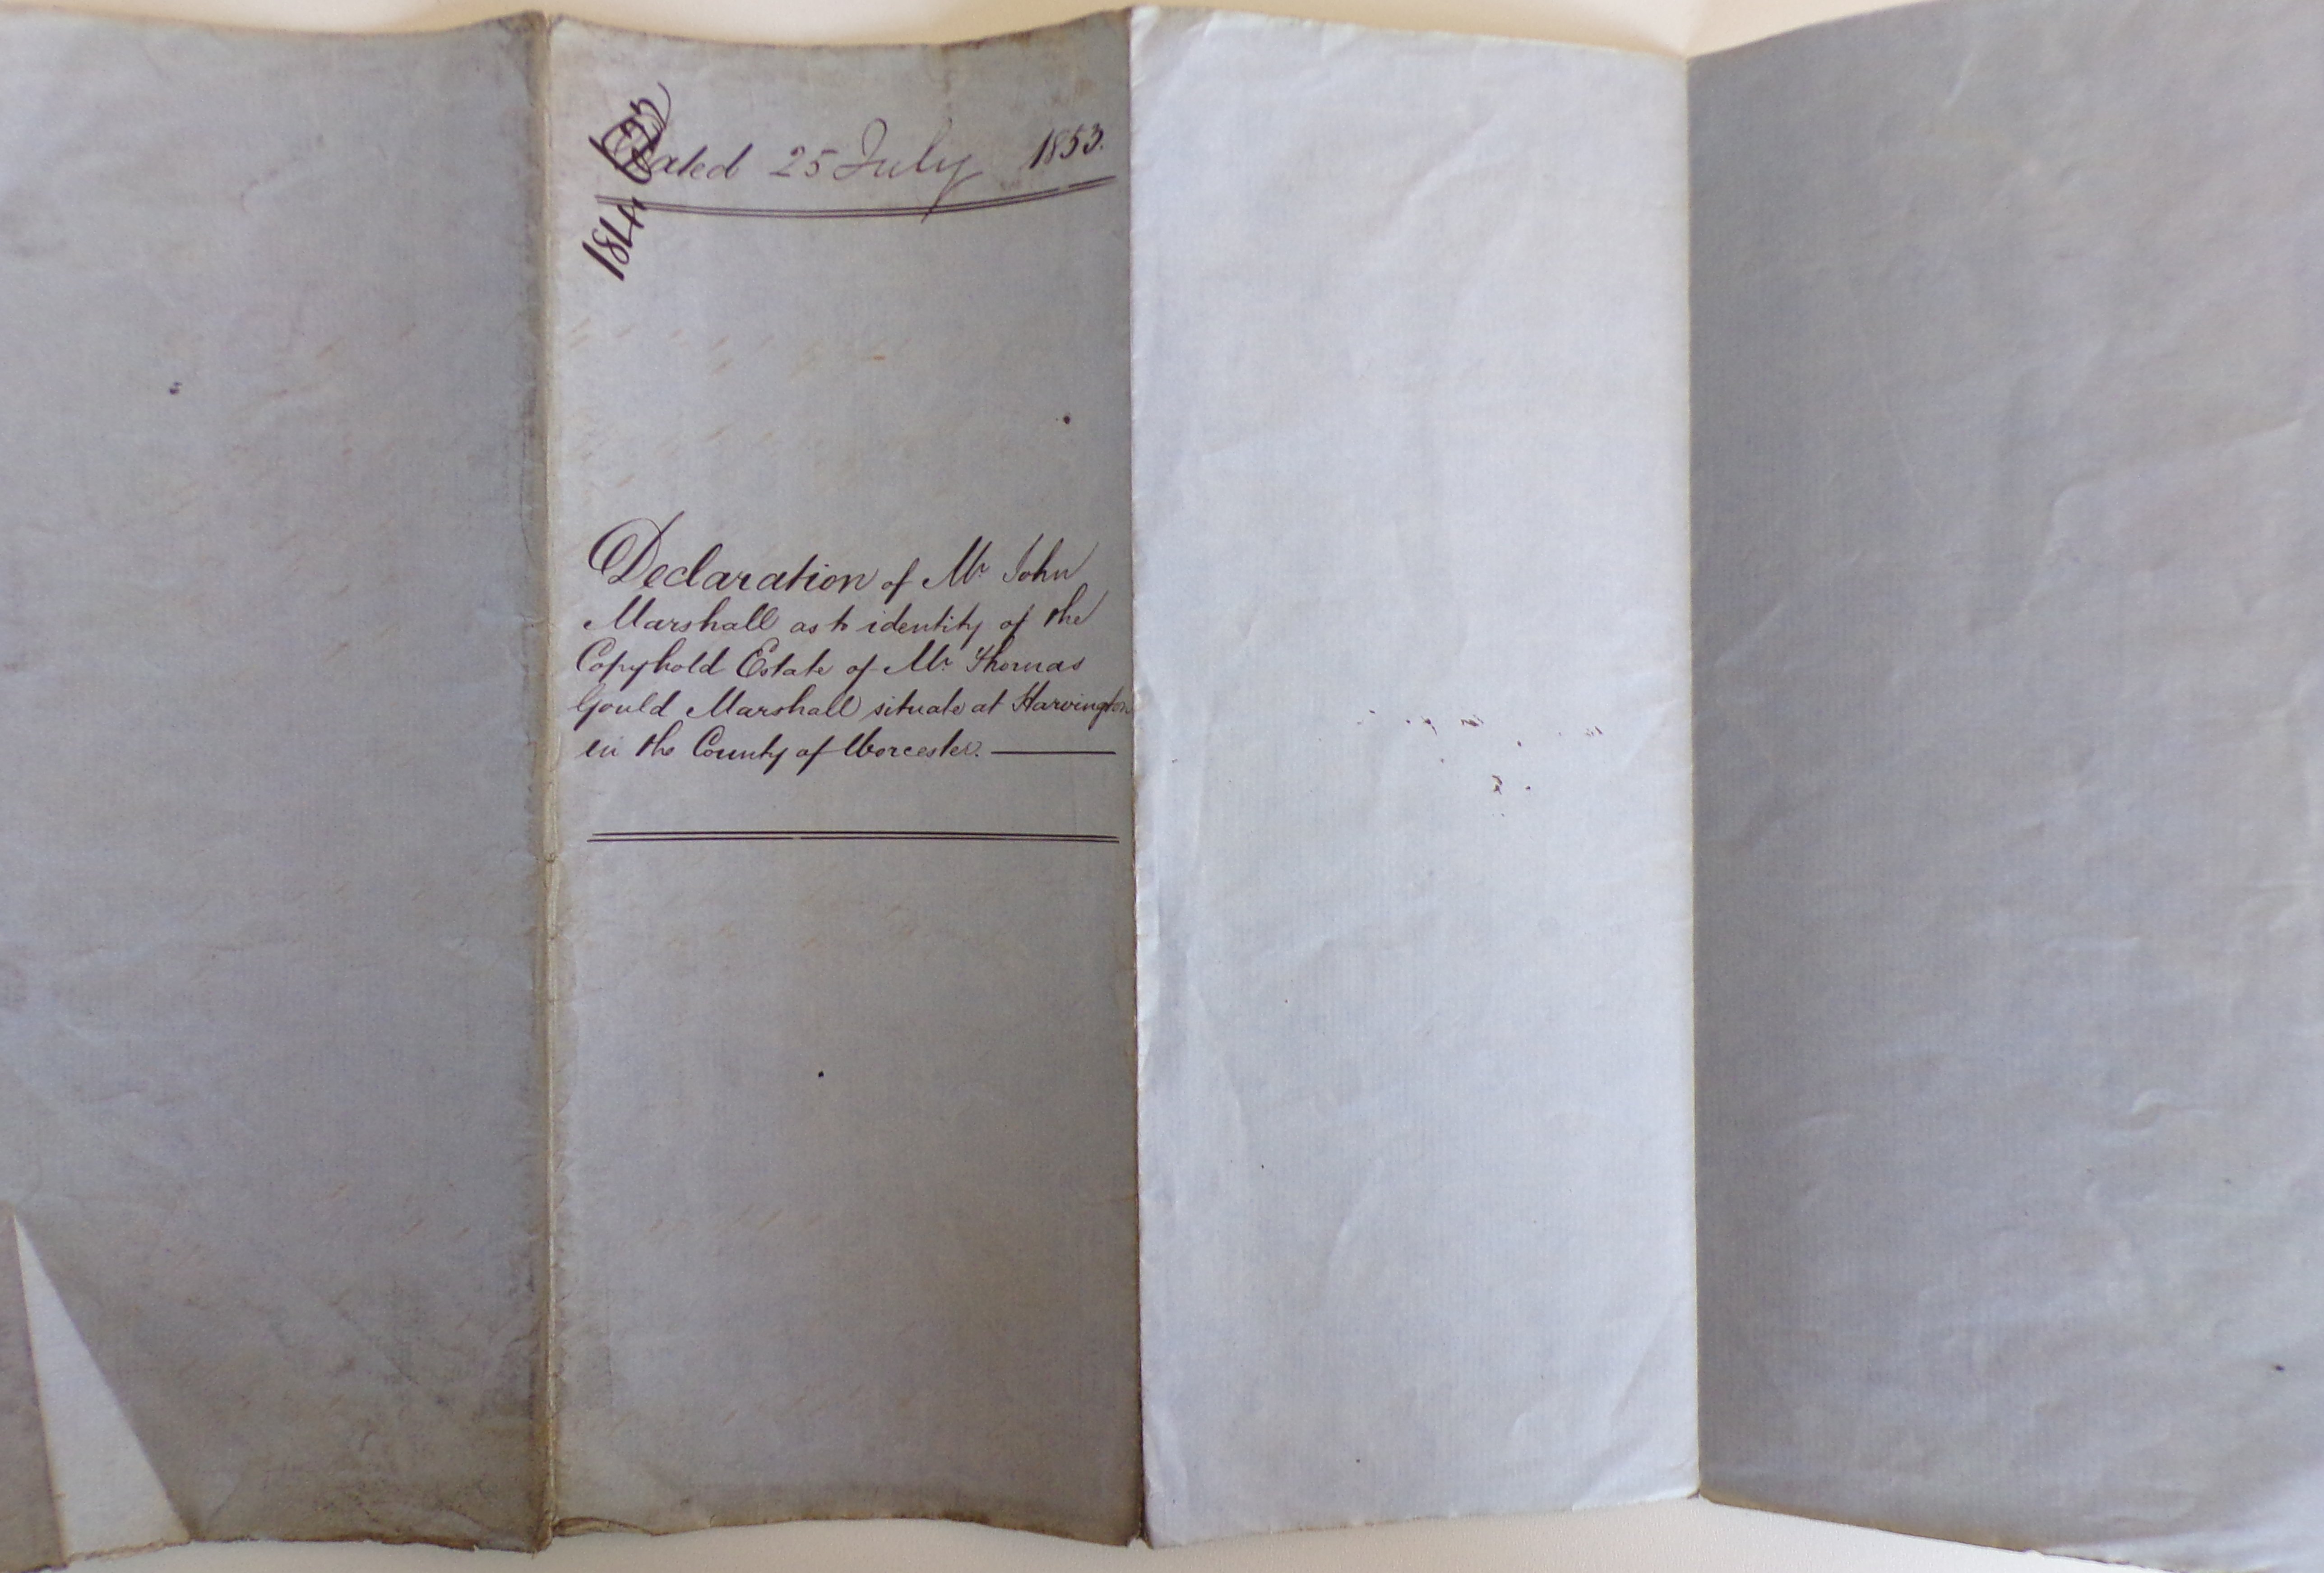 Dated 25 July 1853.
184
Declaration of Mr John
Marshall as to identity of the
Copyhold Estate of Mr Thomas
Gould Marshall situate at Harvington
in the County of Worcester.